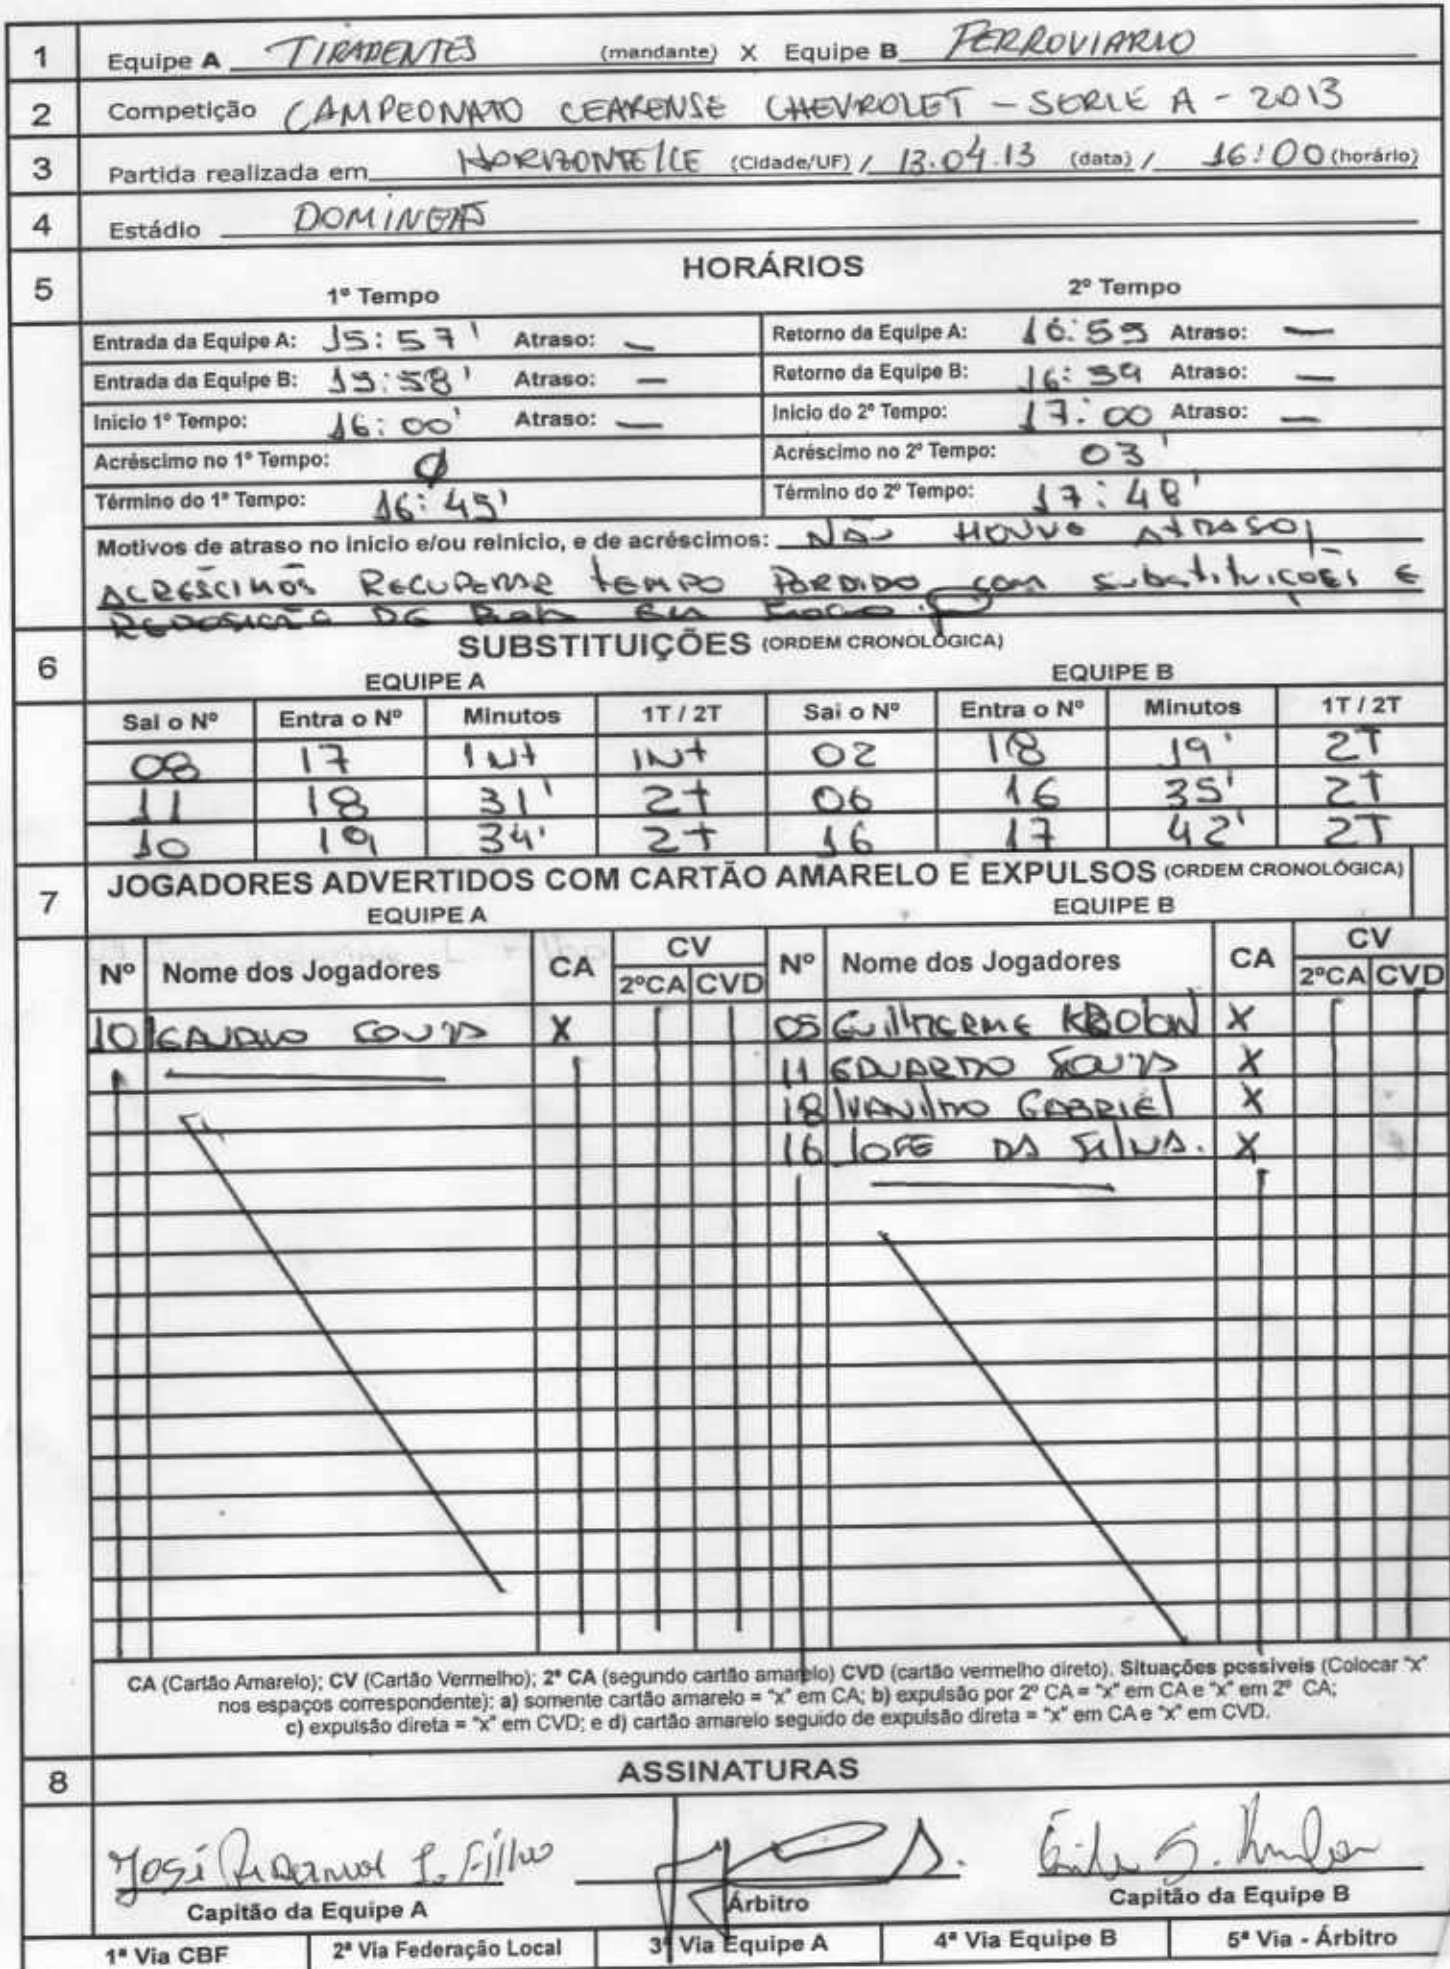 1 Equipe A TIRADENTES (mandante) X Equipe B FERROVIARIO
2 Competição CAMPEONATO CEARENSE CHEVROLET - SERIE A - 2013
3 Partida realizada em HORIZONTE/CE (Cidade/UF) / 13.04.13 (data) / 16:00 (horário)
4 Estádio DOMINGAS
5 HORÁRIOS
1º Tempo 2º Tempo
Entrada da Equipe A: 15:57' Atraso: — Retorno da Equipe A: 16:59 Atraso: —
Entrada da Equipe B: 15:58' Atraso: — Retorno da Equipe B: 16:59 Atraso: —
Inicio 1º Tempo: 16:00' Atraso: — Inicio do 2º Tempo: 17:00 Atraso: —
Acréscimo no 1º Tempo: Ø Acréscimo no 2º Tempo: 03'
Término do 1º Tempo: 16:45' Término do 2º Tempo: 17:48'
Motivos de atraso no inicio e/ou reinicio, e de acréscimos: NÃO HOUVE ATRASO,
ACRESCIMOS RECUPERAR TEMPO PERDIDO com substituições E
REPOSIÇÃO DE BOLA EM
6 SUBSTITUIÇÕES (ORDEM CRONOLÓGICA)
EQUIPE A EQUIPE B
Sai o Nº Entra o Nº Minutos 1T / 2T Sai o Nº Entra o Nº Minutos 1T / 2T
08 17 INt INt 02 18 19' 2T
11 18 31' 2T 06 16 35' 2T
10 19 34' 2T 16 17 42' 2T
7 JOGADORES ADVERTIDOS COM CARTÃO AMARELO E EXPULSOS (ORDEM CRONOLÓGICA)
EQUIPE A EQUIPE B
Nº Nome dos Jogadores CA CV 2ºCA CVD Nº Nome dos Jogadores CA CV 2ºCA CVD
10 SOUZA X 05 GUILHERME X
11 EDUARDO SOUZA X
18 IVANILDO GABRIEL X
16 DA SILVA. X
CA (Cartão Amarelo); CV (Cartão Vermelho); 2º CA (segundo cartão amarelo) CVD (cartão vermelho direto). Situações possiveis (Colocar "x"
nos espaços correspondente): a) somente cartão amarelo = "x" em CA; b) expulsão por 2º CA = "x" em CA e "x" em 2º CA;
c) expulsão direta = "x" em CVD; e d) cartão amarelo seguido de expulsão direta = "x" em CA e "x" em CVD.
8 ASSINATURAS
José L. Filho
Capitão da Equipe A Árbitro Capitão da Equipe B
1ª Via CBF 2ª Via Federação Local 3ª Via Equipe A 4ª Via Equipe B 5ª Via - Árbitro